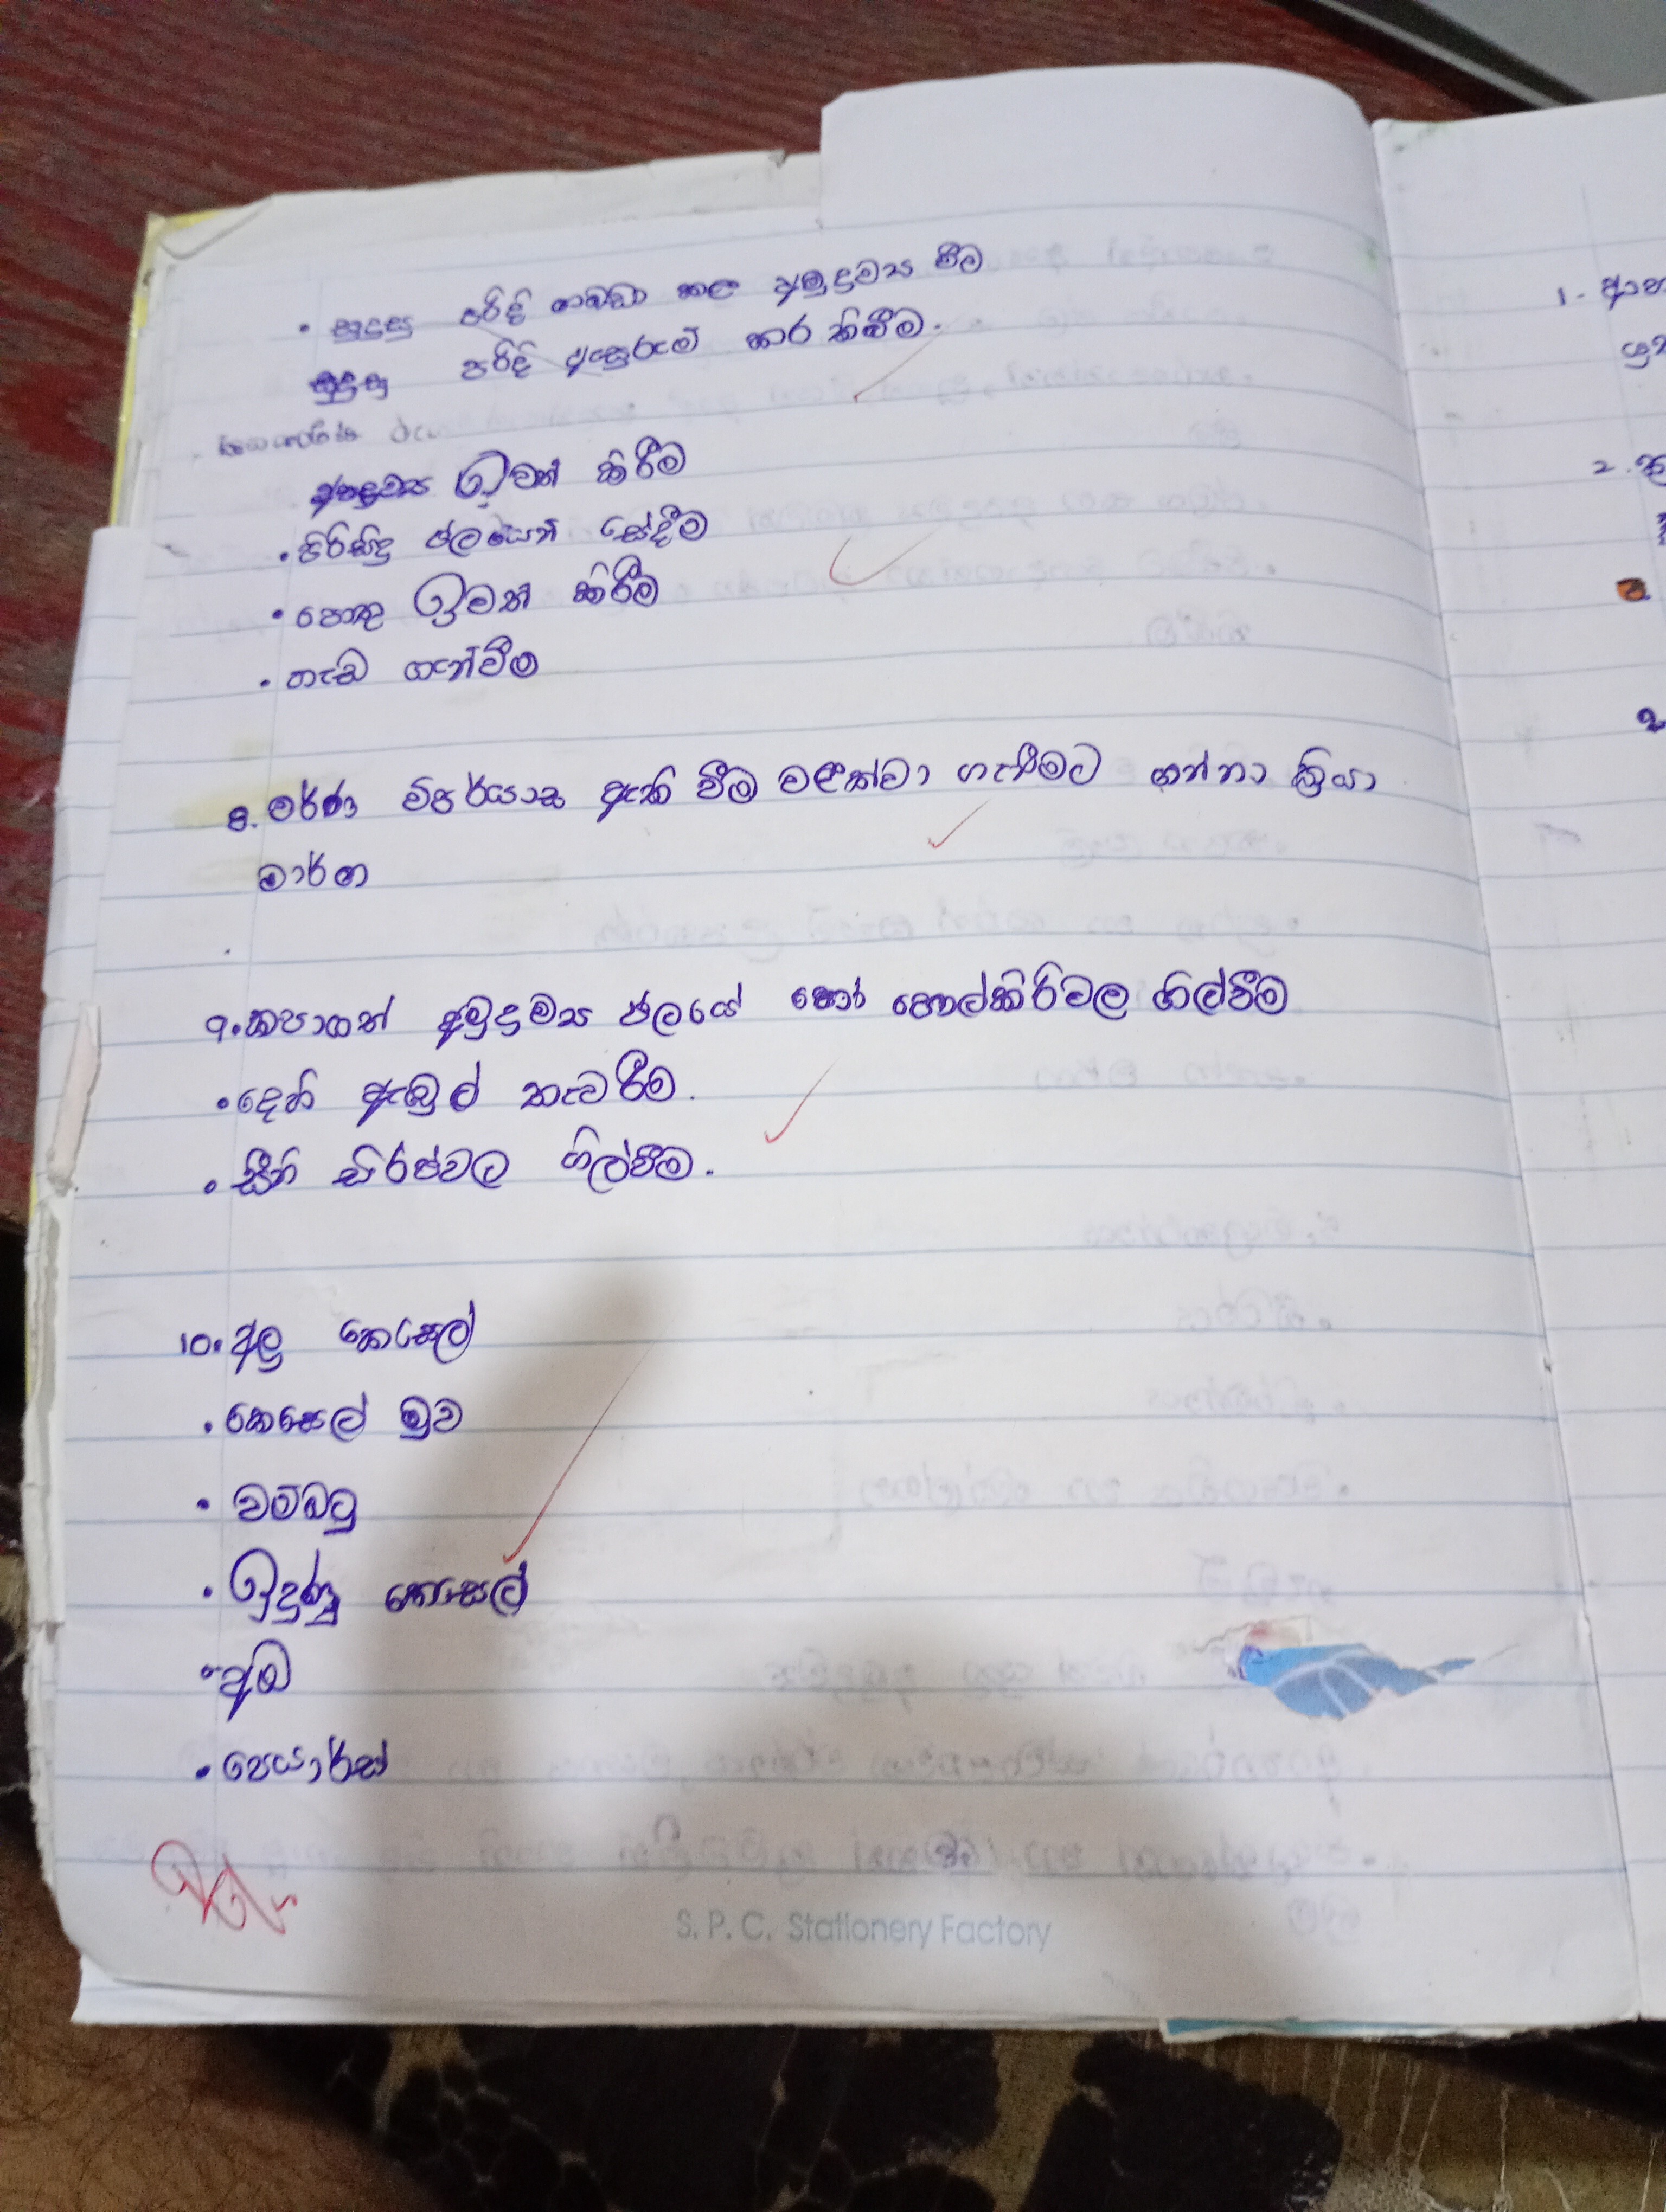 • සුදුසු පරිදි ගබඩා කල අමුද්‍රව්‍ය වීම
සුදුසු පරිදි ඇසුරුම් කර තිබීම.
ඉවත් කිරීම
• පිරිසිදු ජලයෙන් සේදීම
• පොතු ඉවත් කිරීම
• තැඩ ගැන්වීම
8. වර්ණ විපර්යාස ඇති වීම වළක්වා ගැනීමට ගන්නා ක්‍රියා
මාර්ග
9. කපාගත් අමුද්‍රව්‍ය ජලයේ හෝ පොල්කිරිවල ගිල්වීම
• දෙහි ඇඹුල් තැවරීම.
• සීනි සිරප්වල ගිල්වීම.
10. අලු කෙසෙල්
• කෙසෙල් මුව
• වම්බටු
• ඉදුණු කෙසෙල්
• අඹ
• පෙයාර්ස්
S. P. C. Stationery Factory
1. ආහ
2.